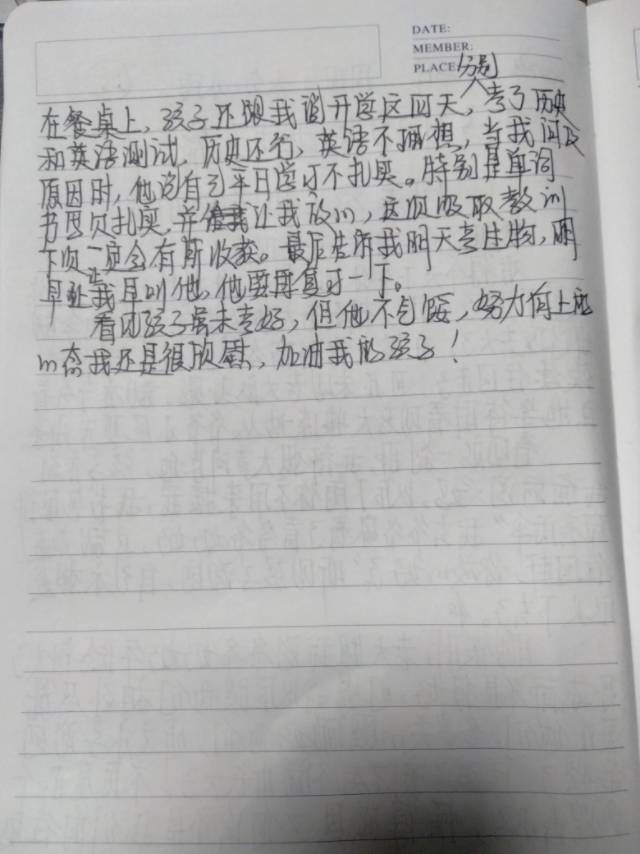 DATE:
MEMBER:
PLACE:
分别
在餐桌上，孩子还跟我说开学这四天，考了历史
和英语测试，历史还行，英语不理想，当我问及
原因时，他说自己平日学习不扎实。特别是单词
扎实，并让我放心，这次吸取教训
下次一定会有所收获。最后告诉我明天考生物，明
早让我早叫他，他要再复习一下。
看到孩子虽未考好，但他不气馁，努力向上的
心态我还是很欣慰，加油我的孩子！